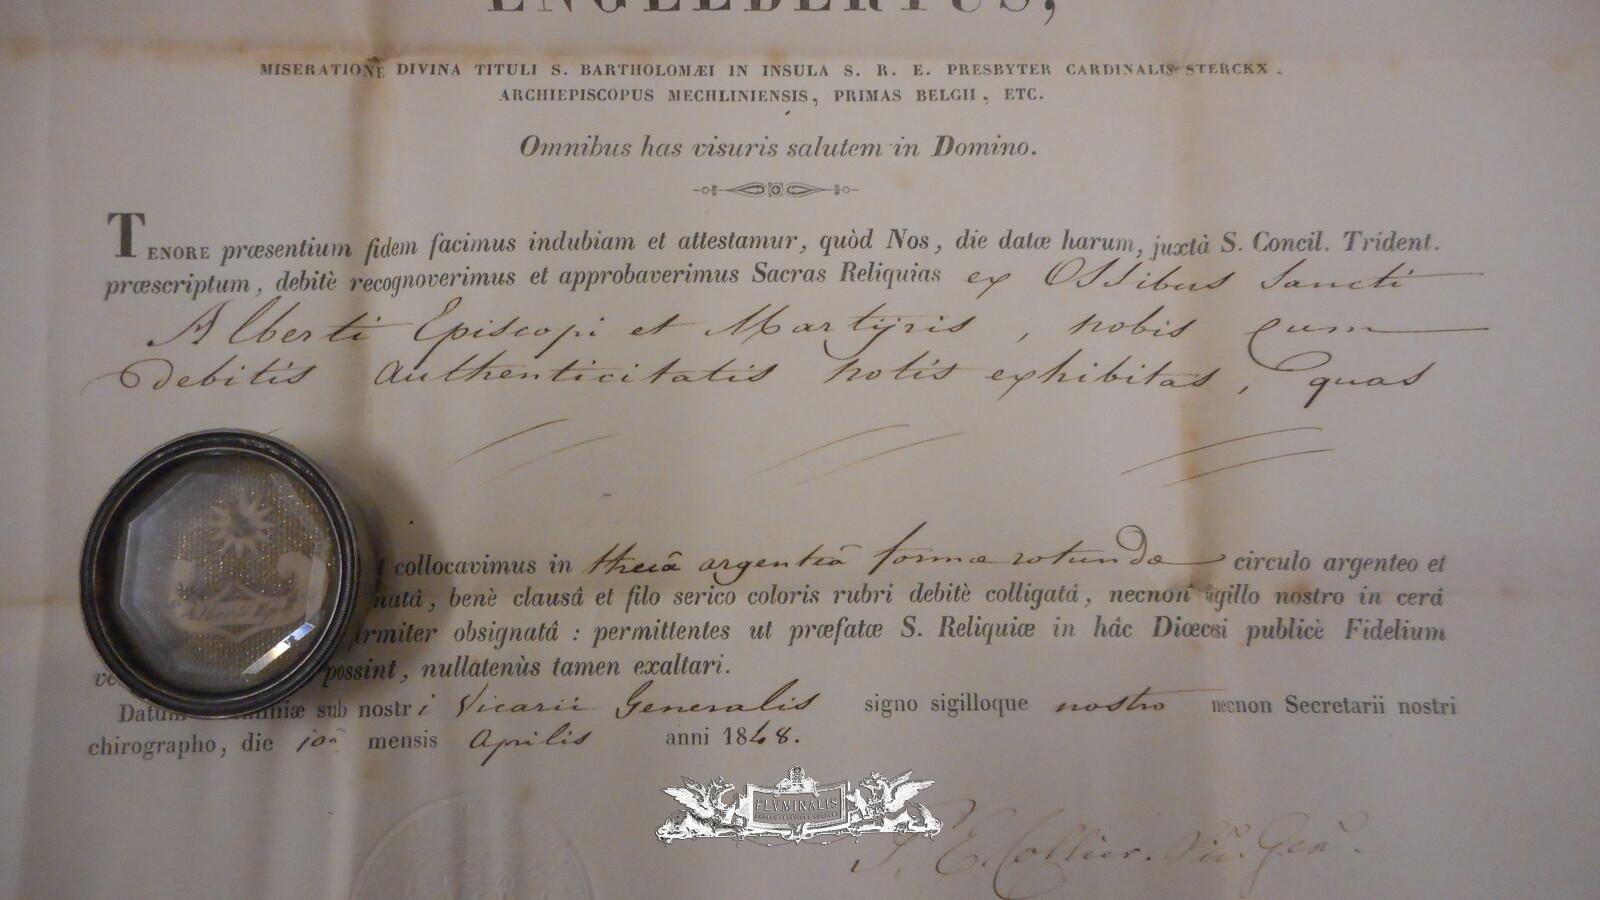 ENGELBERTUS,
MISERATIONE DIVINA TITULI S. BARTHOLOMÆI IN INSULA S. R. E. PRESBYTER CARDINALIS STERCKX,
ARCHIEPISCOPUS MECHLINIENSIS, PRIMAS BELGII, ETC.
Omnibus has visuris salutem in Domino.
TENORE præsentium fidem facimus indubiam et attestamur, quòd Nos, die datæ harum, juxtà S. Concil. Trident.
præscriptum, debitè recognoverimus et approbaverimus Sacras Reliquias ex Ossibus Sancti
Alberti Episcopi et Martyris, nobis cum
debitis authenticitatis notis exhibitas, quas
collocavimus in thecâ argenteâ formæ rotundæ circulo argenteo et
natâ, benè clausâ et filo serico coloris rubri debitè colligatâ, necnon sigillo nostro in cerâ
firmiter obsignatâ : permittentes ut præfatæ S. Reliquiæ in hâc Diœcesi publicè Fidelium
possint, nullatenùs tamen exaltari.
Datum sub nostri Vicarii Generalis signo sigilloque nostro necnon Secretarii nostri
chirographo, die 10â mensis Aprilis anni 1848.
Alberti Ep
FLVMINALIS
J. E. Collier. Vic. Gen.